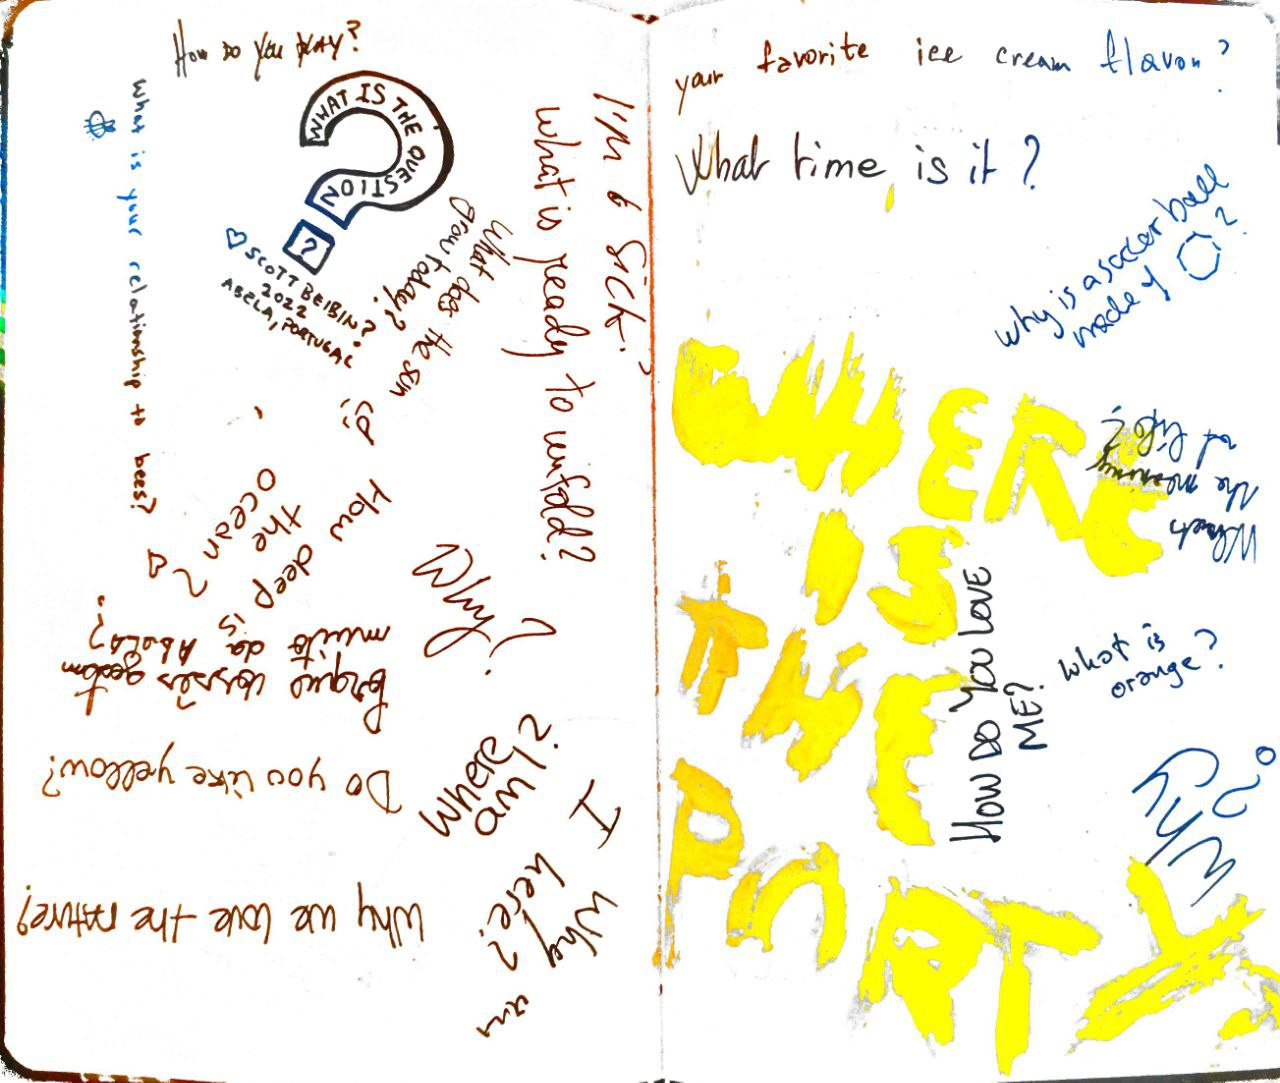 How Do You play?
WHAT IS THE QUESTION
?
SCOTT BEIBIN?
2022
ABELA, PORTUGAL
What is your relationship to bees?
What does the sun
grow today?
I'm 6 sick?
What is ready to unfold?
How deep is
the
ocean?
Why?
muito da ABELA?
Do you like yellow?
Where
am I?
Why we love the nature?
Why am I
here?
your favorite ice cream flavour?
What time is it?
Why is a soccer ball
made of
?
WHERE
IS
THE
PARTY
Which
the meaning
of life?
HOW DO YOU LOVE
ME?
What is
orange?
Why?